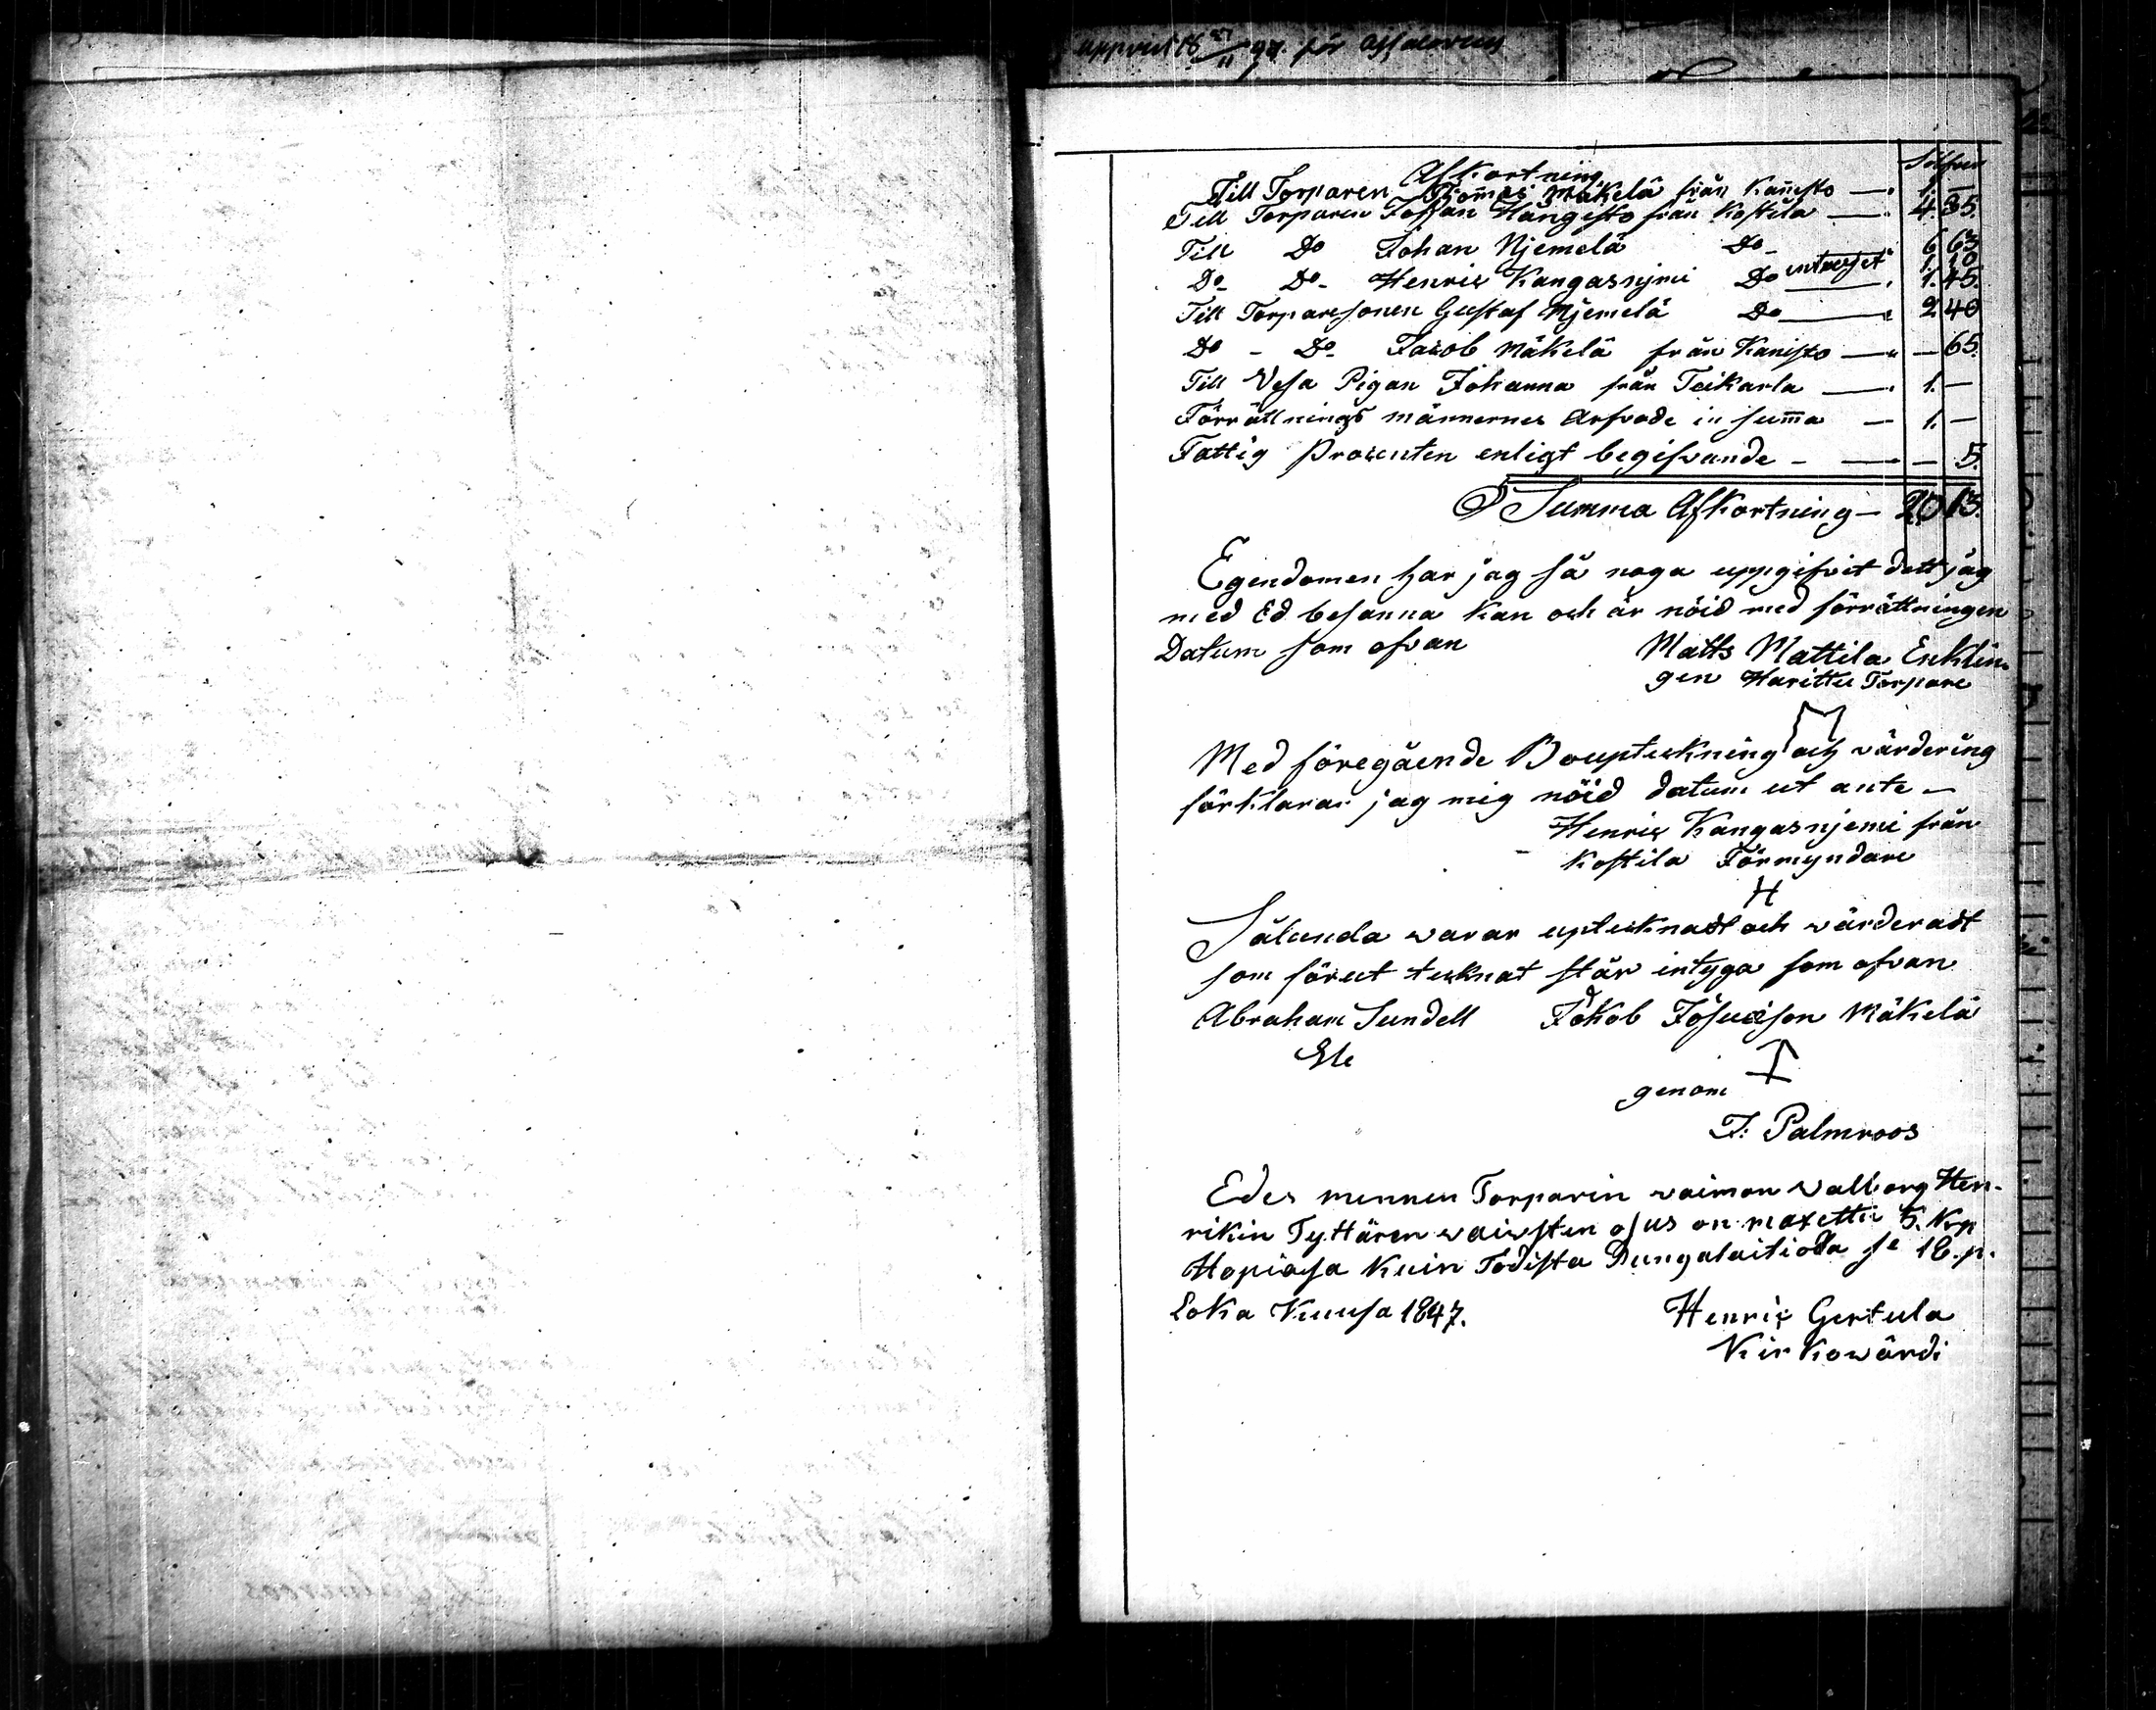 Afkortning Silfver
Till Torparen Thom̄as Mäkelä från Kan̄isto — 1. —
Till Torparen Johan Hängesto från Kostila — 4. 35.
Till Do Johan Njemelä Do 6 63
intresset 1. 10
Do Do Henric Kangasnjmi Do — 1. 45.
Till Torparesonen Gustaf Njemelä Do — 2 40
Do - Do Jacob Mäkelä från Kanisto — — 65.
Till Vesa Pigan Johanna från Teikarla — 1. —
Förrättnings männernes Arfvode in sum̄a — 1. —
Fattig Procenten enligt begifvande — — 5.
Summa Afkortning — 20 13.
Egendomen har jag så noga uppgifvit dett jag
med Ed besanna kan och är nöid med förrättningen
Datum som ofvan Matts Mattila Enklin-
gen Harittu Torpare
Med föregående Boupteckning och värdering
förklarar jag mig nöid datum ut ante —
Henric Kangasnjemi från
Kostila Förmyndare
H
Sålunda varar upteknadt och värderadt
som förut tecknat står intyga som ofvan
Abraham Sundell Jakob Josuæson Mäkelä
genom
F. Palmroos
Edes mennen Torparin waimon Walborg Hen-
rikin Tyttären waiwsten osus on maxettu 5. Kop
Hopiasa Kuin Todista Pungalaitiosta se 18. p.
Loka Kuusa 1847. Henric Gertula
Kirkowärdi